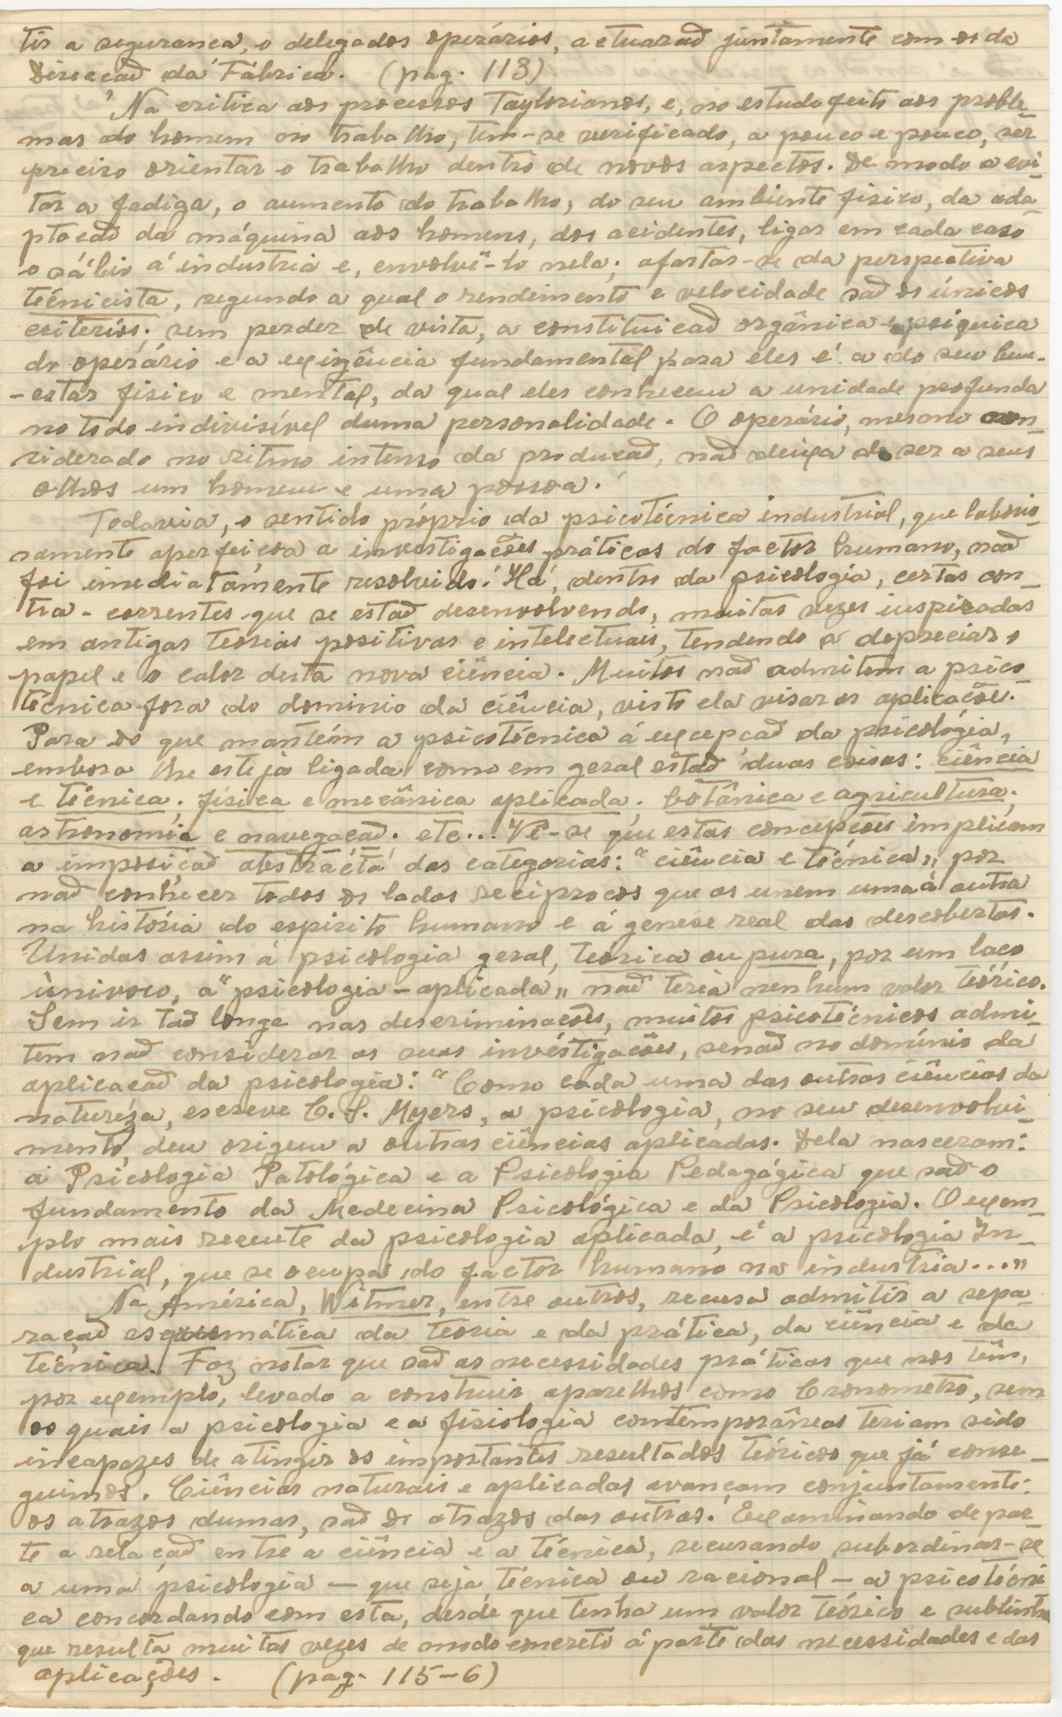 tir a seguranca, o delegados operários, actuarað juntamente com os da
Direcçað da Fábrica. (pag. 113)
Na critica aos processos Taylorianos, e, no estudo feito aos proble-
mas do homem no trabalho, tem-se verificado, a pouco e pouco, ser
preciso orientar o trabalho dentro de novos aspectos. De modo a evi-
tar a fadiga, o aumento do trabalho, do seu ambiente fisico, da ada-
ptacað da máquina aos homens, dos acidentes, ligar em cada caso
o sábio á industria e, envolvê-lo nela; afastar-se da perspectiva
técnicista, segundo a qual o rendimento e velocidade sað os únicos
criterios; sem perder de vista, a constituicað orgânica e psiquica
do operário e a exigência fundamental para eles é a do seu bem-
-estar fisico e mental, da qual eles conhecem a unidade profunda
no tôdo indivisível duma personalidade. O operário, mesmo con-
siderado no ritmo intenso da produçað, nað deixa de ser a seus
olhos um homem e uma pessoa.
Todavia, o sentido próprio da psicotécnica industrial, que laborio-
samente aperfeicoa a investigações práticas do factor humano, nað
foi imediatamente resolvido. Há, dentro da psicologia, certas con-
tra-correntes que se estað desenvolvendo, muitas vezes inspiradas
em antigas teorias positivas e intelectuais, tendendo a depreciar o
papel e o valor desta nova ciência. Muitos nað admitem a psico-
técnica fora do dominio da ciência, visto ela visar as aplicações.
Para os que mantém a psicotécnica á excepçað da psicológia,
embora lhe esteja ligada como em geral estað duas coisas: ciência
e técnica. fisica e mecânica aplicada. botânica e agricultura;
astronomia e navegaçað. etc... Vê-se que estas concepções implicam
a imposiçað abstracta das categorias: "ciência e técnica", por
nað conhecer todos os lados reciprocos que as unem uma á outra
na história do espirito humano e á genese real das descobertas.
Unidas assim á psicologia geral, teorica ou pura, por um laco
ùnivoco, a "psicologia-aplicada" nað teria nenhum valor teórico.
Sem ir tað longe nas descriminacões, muitos psicotécnicos admi-
tem nað considerar as suas invéstigações, senað no domínio da
aplicacað da psicologia: "Como cada uma das outras ciências da
natureza, escreve C. S. Myers, a psicologia, no seu desenvolvi-
mento, deu origem a outras ciências aplicadas. Dela nasceram:
a Psicologia Patológica e a Psicologia Pedagógica que sað o
fundamento da Medecina Psicológica e da Psicologia. O exem-
plo mais recente da psicologia aplicada, é a psicologia In-
dustrial, que se ocupa do factor humano na industria..."
Na América, Witmer, entre outros, recusa admitir a sepa-
raçað esquemática da teoria e da prática, da ciência e da
técnica. Faz notar que sað as necessidades práticas que nos têm,
por exemplo, levado a construir aparelhos como Cronometro, sem
os quais a psicologia e a fisiologia contemporâneas teriam sido
incapazes de atingir os importantes resultados teóricos que já conse-
guimos. Ciências naturais e aplicadas avançam conjuntamente:
os atrazos dumas, sað os atrazos das outras. Examinando de par-
te a relaçað entre a ciência e a técnica, recusando subordinar-se
a uma psicologia — que seja técnica ou racional — a psicotécni-
ca concordando com esta, desde que tenha um valor teórico e sublinha
que resulta muitas vezes de modo concreto á parte das necessidades e das
aplicações. (pag. 115-6)